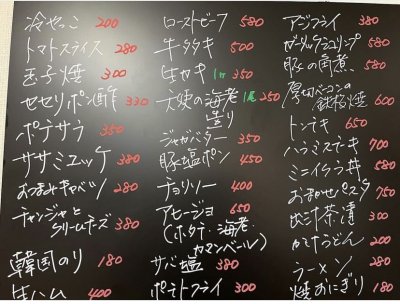 冷やっこ 200
トマトスライス 280
玉子焼 300
セセリポン酢 330
ポテサラ 350
ササミユッケ 380
おつまみキャベツ 280
チャンジャと
クリームチーズ 380
韓国のり 180
生ハム 400
ローストビーフ 580
牛タタキ 500
生カキ 1ヶ 350
大使の海老 1尾 250
造り
ジャガバター 350
豚塩ポン 450
チョリソー 400
アヒージョ 650
(ホタテ、海老、
カマンベール)
サバ塩 380
ポテトフライ 300
アジフライ 380
ガーリックシュリンプ 580
豚の角煮 580
厚切ベーコンの
鉄板焼 600
トンテキ 650
ハラミステーキ 700
ミニイクラ丼 580
おまかせパスタ 750
出汁茶漬 300
かけうどん 200
ラーメン 280
焼おにぎり 180